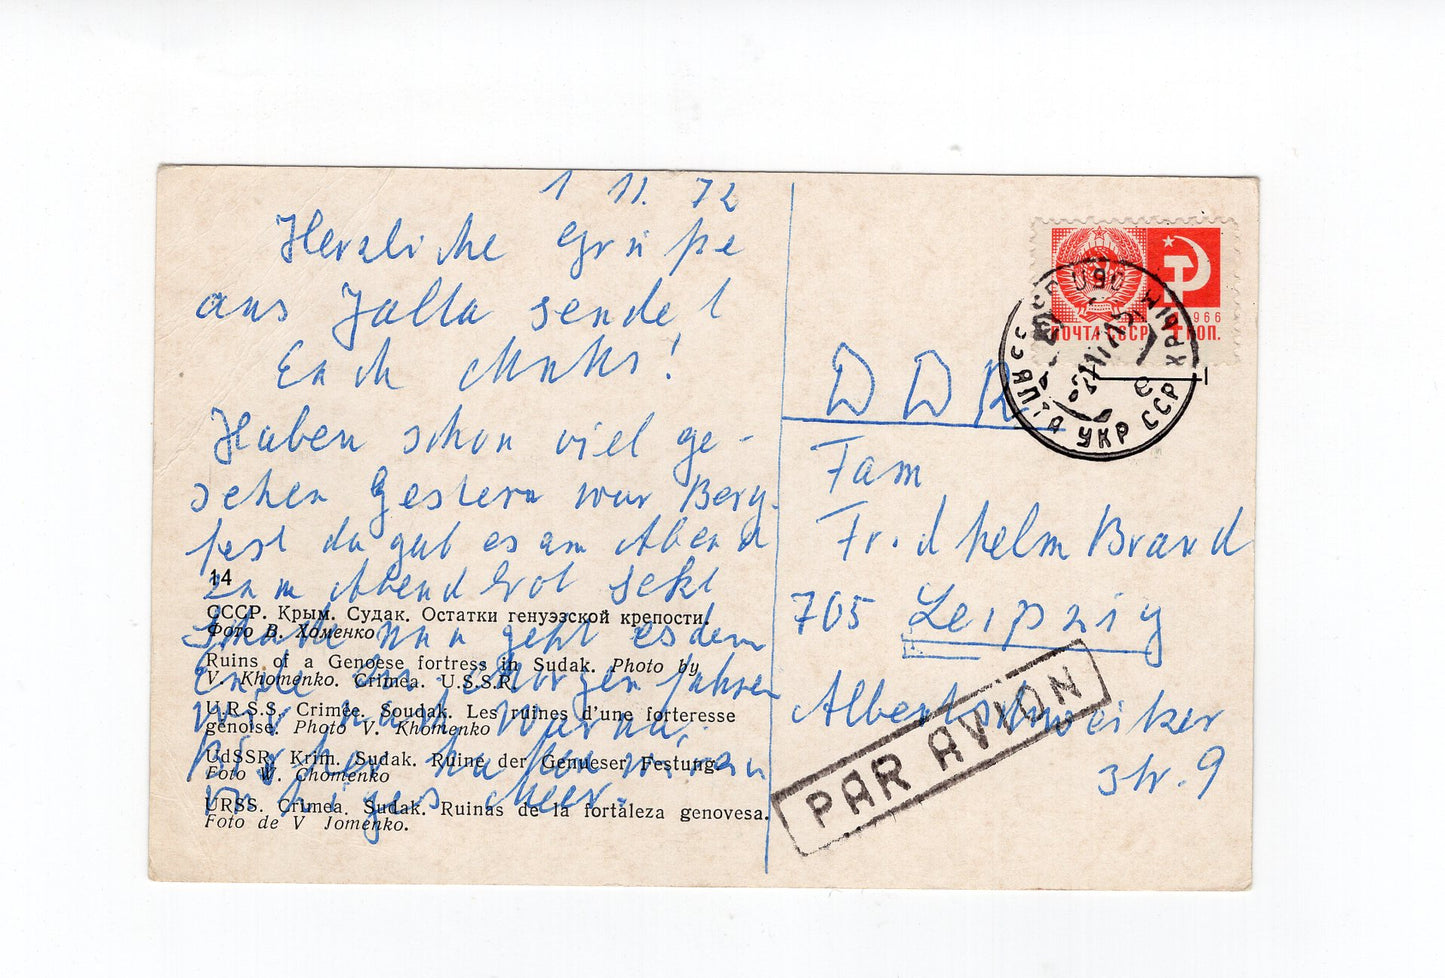 1 11. 72
Herzliche Grüße
aus Jalta sendet
Euch
Haben schon viel ge-
sehen Gestern war Berg-
fest da gab es am Abend
zum Abend Brot Sekt
nun geht es dem
Ende
wir nach
haben wir ein
Meer.
14
СССР. Крым. Судак. Остатки генуэзской крепости.
Фото В. Хоменко
Ruins of a Genoese fortress in Sudak. Photo by
V. Khomenko. Crimea. U.S.S.R.
U.R.S.S. Crimée. Soudak. Les ruines d'une forteresse
génoise. Photo V. Khomenko
UdSSR. Krim. Sudak. Ruine der Genueser Festung.
Foto W. Chomenko
URSS. Crimea. Sudak. Ruinas de la fortaleza genovesa.
Foto de V Jomenko.
ПОЧТА СССР
1966
1 КОП.
ЯЛТА УКР ССР
DDR
Fam
Friedhelm Brand
705 Leipzig
Albertschweitzer
str. 9
PAR AVION